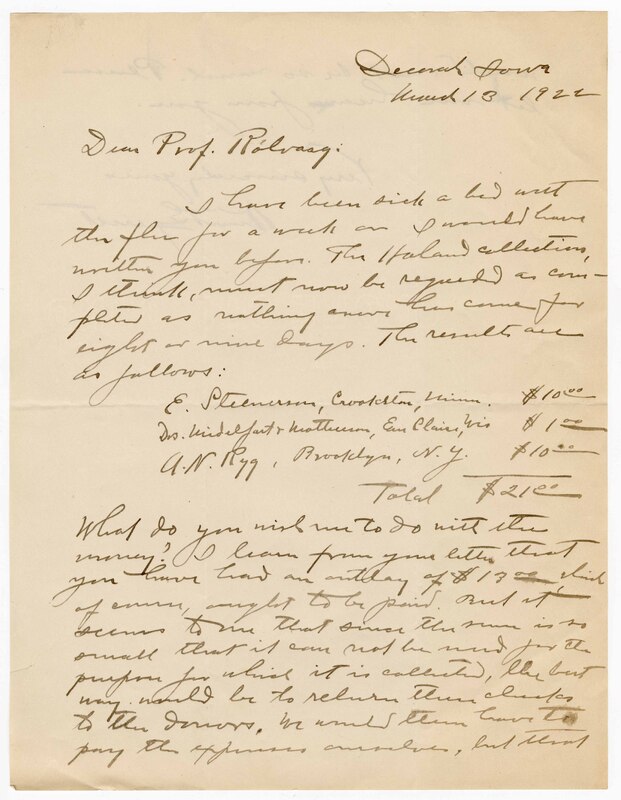 Decorah Iowa
March 13 1922
Dear Prof. Rölvaag:
I have been sick a bed with
the flu for a week or I would have
written you before. The Holand collection,
I think, must now be regarded as com-
pleted as nothing more has come for
eight or nine days. The results are
as follows:
E. Steenerson, Crookston, Minn. $10.00
Drs. Midelfart & Mathieson, Eau Claire, Wis $1.00
A.N. Rygg, Brooklyn, N.Y. $10.00
Total $21.00
What do you wish me to do with the
money? I learn from your letter that
you have had an outlay of $13.00 which
of course, ought to be paid. But it
seems to me that since the sum is so
small that it can not be used for the
purpose for which it is collected, the best
way would be to return these checks
to the donors. We would then have to
pay the expenses ourselves, but that